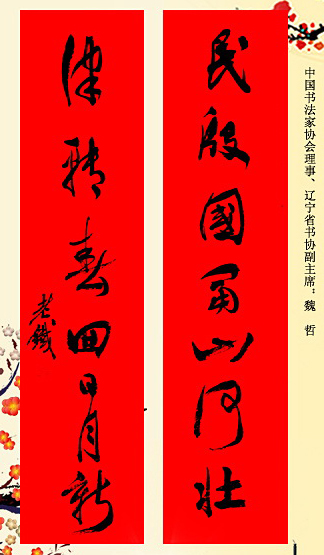 中国书法家协会理事、辽宁省书协副主席：魏 哲
民殷國富山河壮
律轉春回日月新
老鐵